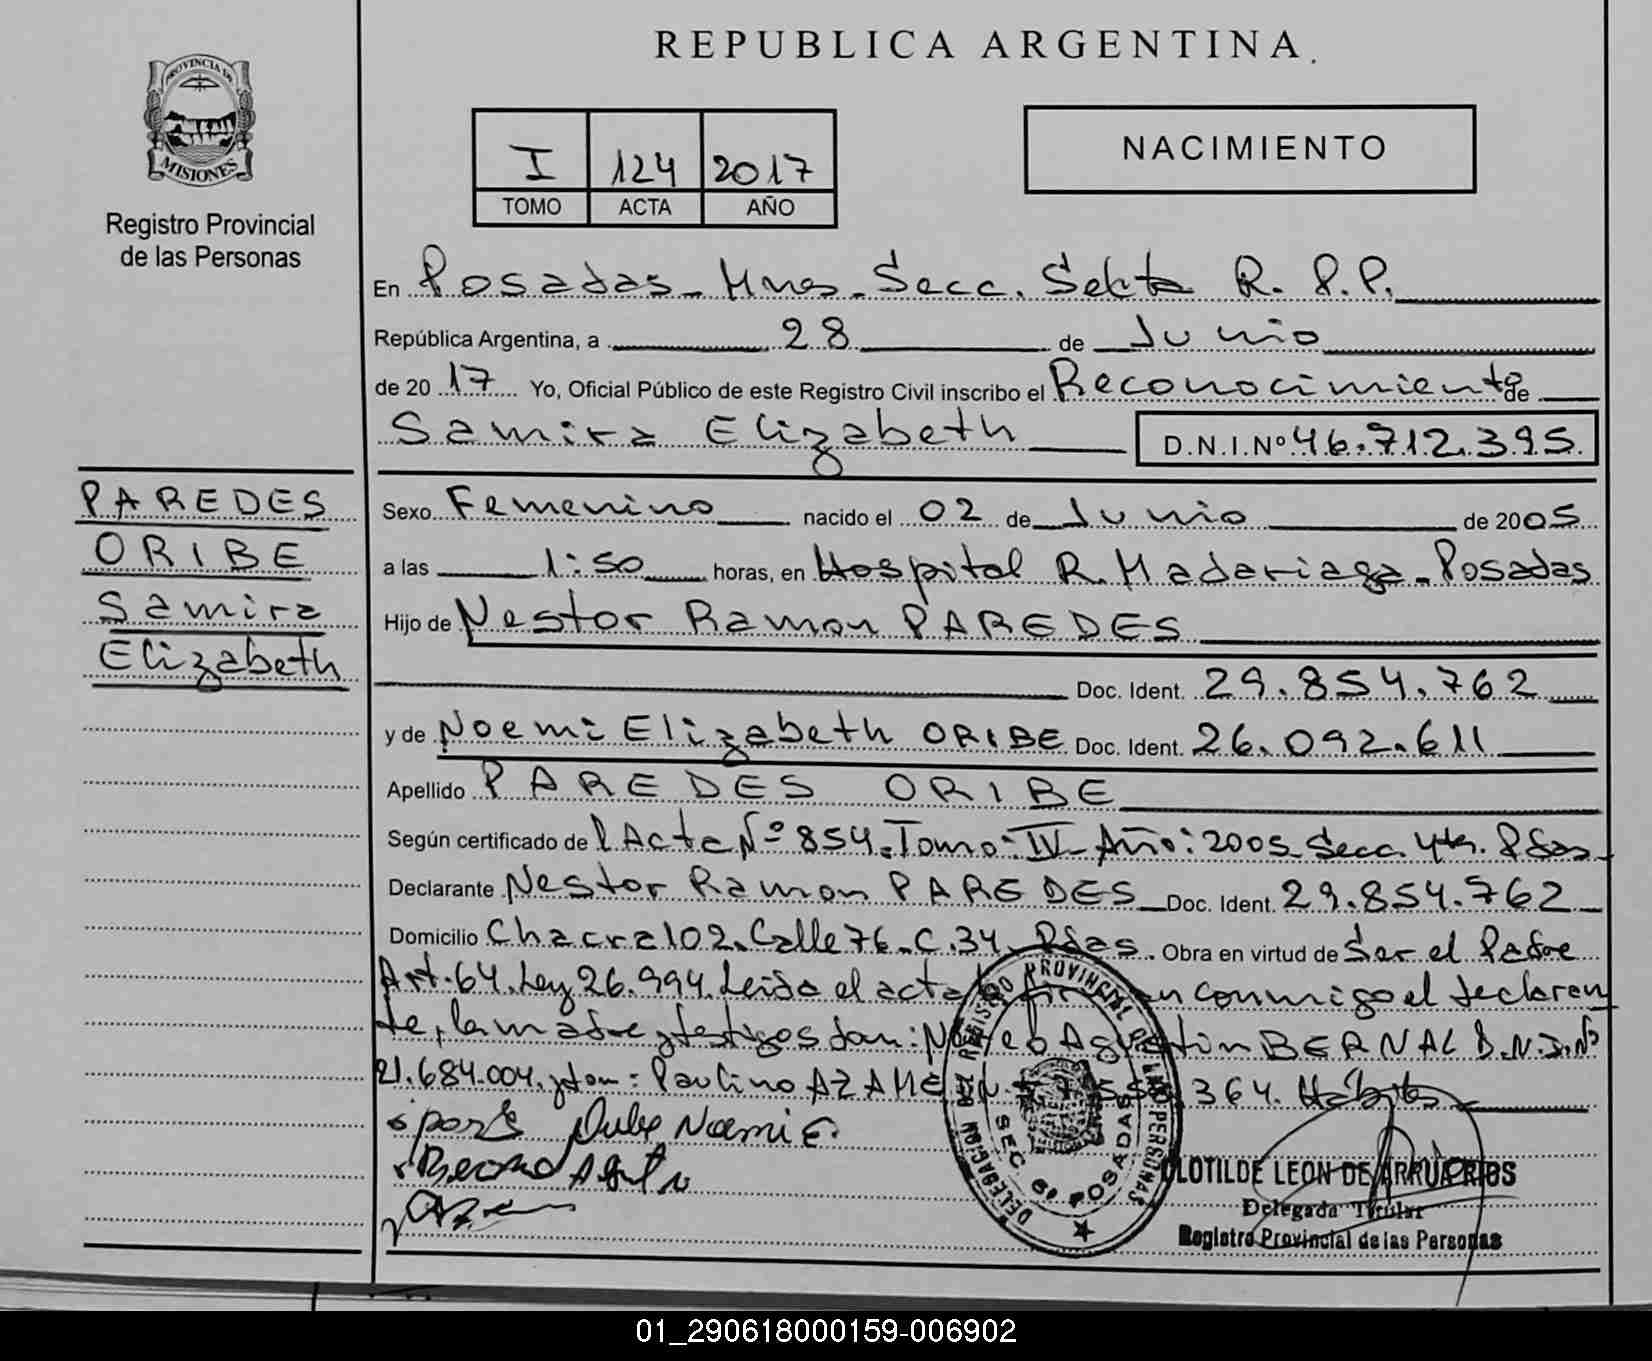 REPUBLICA ARGENTINA
PROVINCIA DE
MISIONES
Registro Provincial
de las Personas
I 124 2017
TOMO ACTA AÑO
NACIMIENTO
En Posadas - Mnes. Secc. Sexta R. P. P.
República Argentina, a 28 de Junio
de 2017 Yo, Oficial Público de este Registro Civil inscribo el Reconocimiento de
Samira Elizabeth D.N.I.Nº 46.712.395
PAREDES
ORIBE
Samira
Elizabeth
Sexo Femenino nacido el 02 de Junio de 2005
a las 1:50 horas, en Hospital R. Madariaga - Posadas
Hijo de Nestor Ramon PAREDES
Doc. Ident. 29.854.762
y de Noemi Elizabeth ORIBE Doc. Ident. 26.092.611
Apellido PAREDES ORIBE
Según certificado de l Acta Nº 854. Tomo: IV - Año: 2005 Secc. 4ta. Pdas
Declarante Nestor Ramon PAREDES Doc. Ident. 29.854.762
Domicilio Chacra 102. Calle 76 - C. 34. Pdas. Obra en virtud de Ser el Padre
Art. 64. Ley 26.994. Leida el acta conmigo el declaran
te, la madre y testigos don: BERNAL D.N.I. Nº
21.684.004. y don: Paulino 364.
Noemi
DELEGACION DEL REGISTRO PROVINCIAL DE LAS PERSONAS
SEC 6ª POSADAS
CLOTILDE LEON DE ARRUA RIOS
Delegada Titular
Registro Provincial de las Personas
01_290618000159-006902